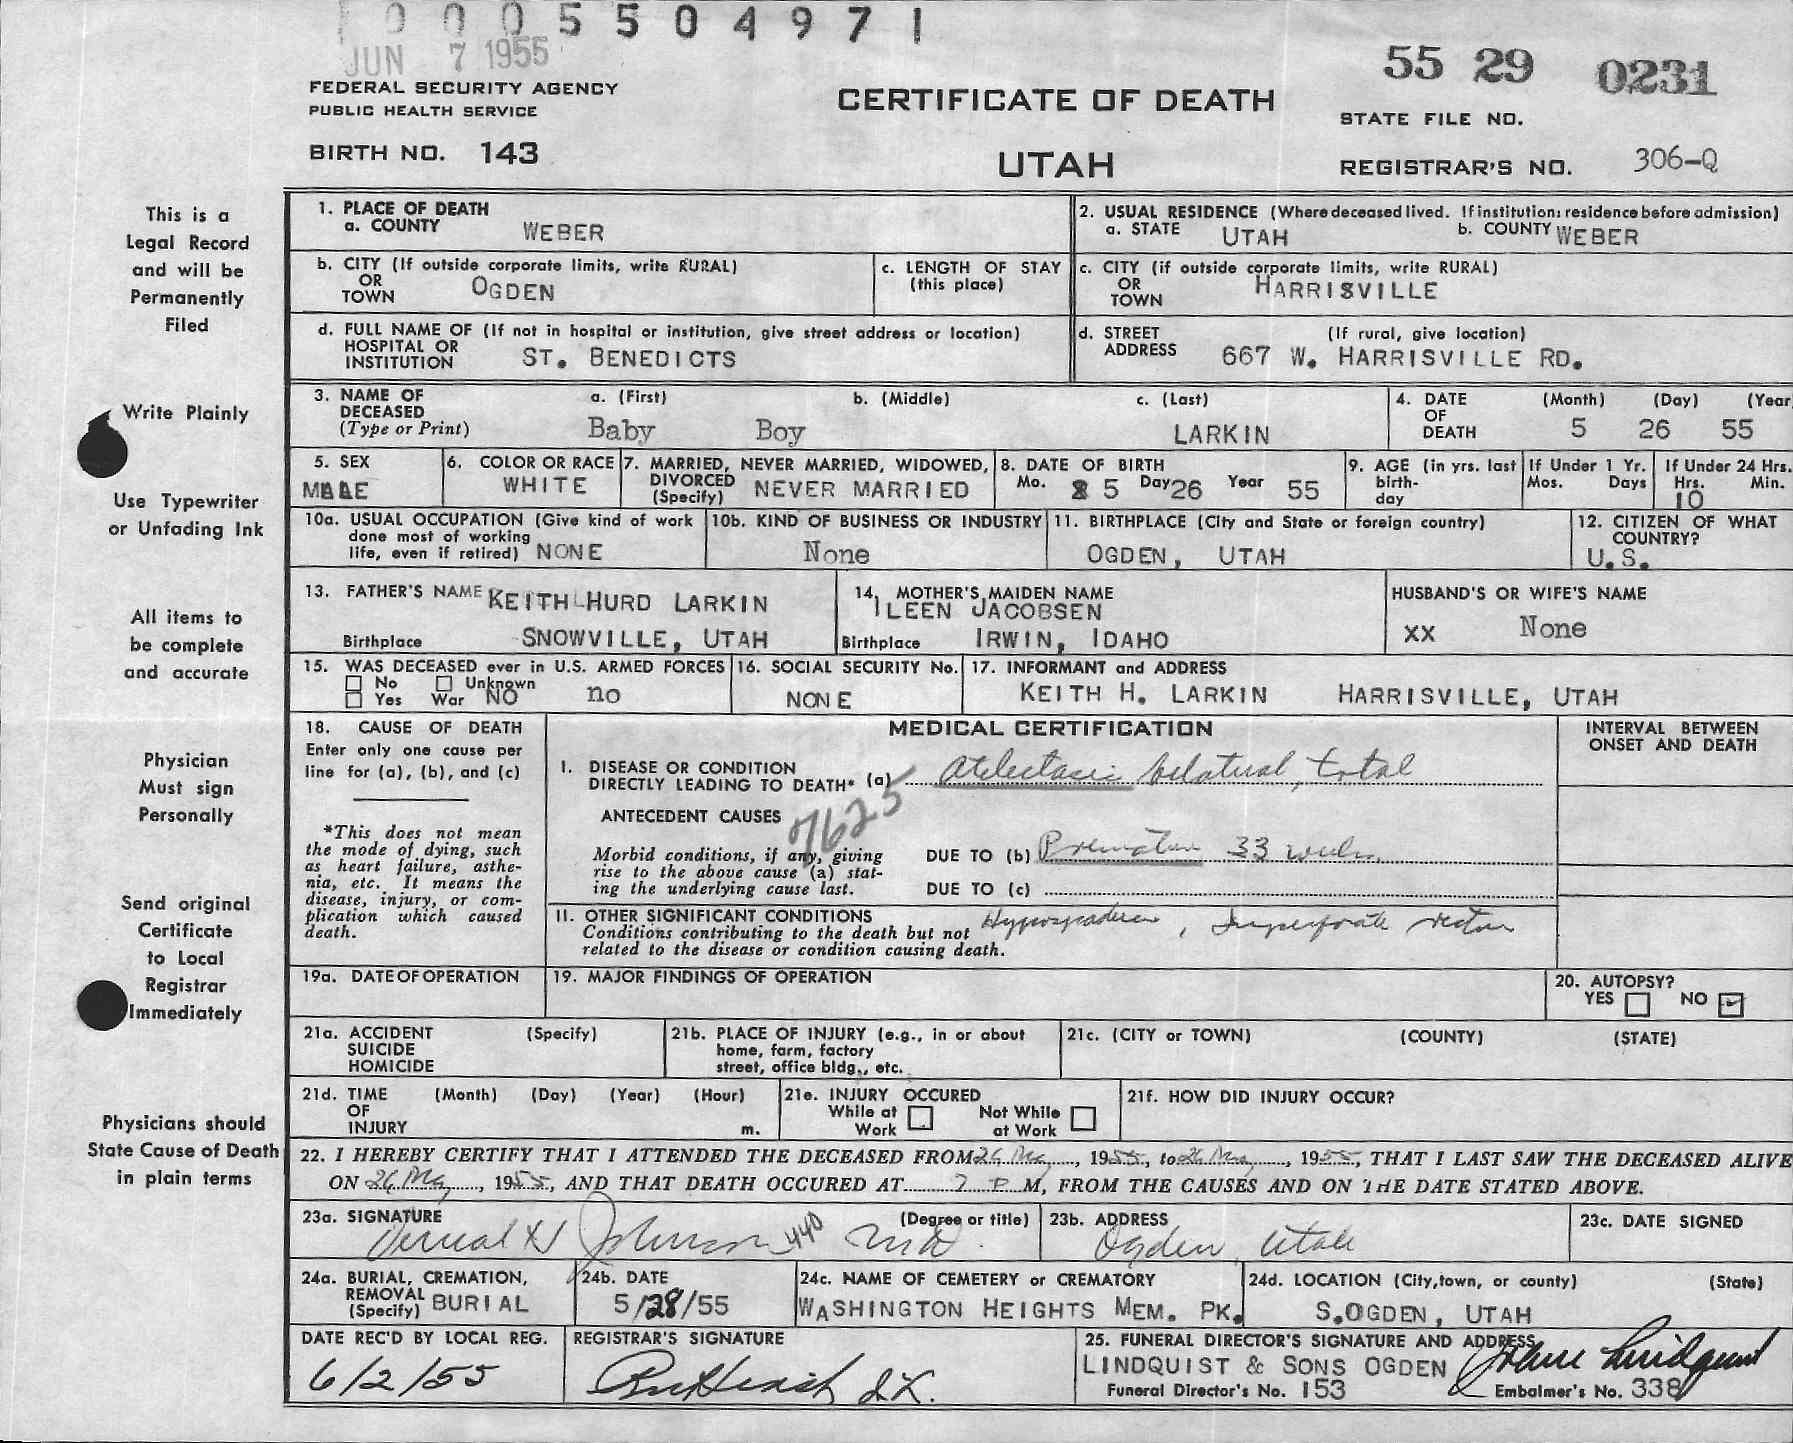 0005504971
JUN 7 1955
55 29 0231
FEDERAL SECURITY AGENCY
PUBLIC HEALTH SERVICE
CERTIFICATE OF DEATH
STATE FILE NO.
BIRTH NO. 143
UTAH
REGISTRAR'S NO. 306-Q
This is a
Legal Record
and will be
Permanently
Filed
Write Plainly
Use Typewriter
or Unfading Ink
All items to
be complete
and accurate
Physician
Must sign
Personally
Send original
Certificate
to Local
Registrar
Immediately
Physicians should
State Cause of Death
in plain terms
1. PLACE OF DEATH
a. COUNTY WEBER
2. USUAL RESIDENCE (Where deceased lived. If institution: residence before admission)
a. STATE UTAH b. COUNTY WEBER
b. CITY (If outside corporate limits, write RURAL)
OR
TOWN OGDEN
c. LENGTH OF STAY
(this place)
c. CITY (if outside corporate limits, write RURAL)
OR
TOWN HARRISVILLE
d. FULL NAME OF (If not in hospital or institution, give street address or location)
HOSPITAL OR
INSTITUTION ST. BENEDICTS
d. STREET (If rural, give location)
ADDRESS 667 W. HARRISVILLE RD.
3. NAME OF a. (First) b. (Middle) c. (Last)
DECEASED
(Type or Print) Baby Boy LARKIN
4. DATE (Month) (Day) (Year
OF
DEATH 5 26 55
5. SEX
MALE
6. COLOR OR RACE
WHITE
7. MARRIED, NEVER MARRIED, WIDOWED,
DIVORCED
(Specify) NEVER MARRIED
8. DATE OF BIRTH
Mo. 5 Day 26 Year 55
9. AGE (in yrs. last
birth-
day
If Under 1 Yr.
Mos. Days
If Under 24 Hrs.
Hrs. Min.
10
10a. USUAL OCCUPATION (Give kind of work
done most of working
life, even if retired) NONE
10b. KIND OF BUSINESS OR INDUSTRY
None
11. BIRTHPLACE (City and State or foreign country)
OGDEN, UTAH
12. CITIZEN OF WHAT
COUNTRY?
U.S.
13. FATHER'S NAME KEITH HURD LARKIN
Birthplace SNOWVILLE, UTAH
14. MOTHER'S MAIDEN NAME
ILEEN JACOBSEN
Birthplace IRWIN, IDAHO
HUSBAND'S OR WIFE'S NAME
XX None
15. WAS DECEASED ever in U.S. ARMED FORCES
No Unknown
Yes War NO no
16. SOCIAL SECURITY No.
NONE
17. INFORMANT and ADDRESS
KEITH H. LARKIN HARRISVILLE, UTAH
18. CAUSE OF DEATH
Enter only one cause per
line for (a), (b), and (c)
*This does not mean
the mode of dying, such
as heart failure, asthe-
nia, etc. It means the
disease, injury, or com-
plication which caused
death.
MEDICAL CERTIFICATION
INTERVAL BETWEEN
ONSET AND DEATH
I. DISEASE OR CONDITION
DIRECTLY LEADING TO DEATH* (a) Atelectasis bilateral, total
ANTECEDENT CAUSES
7625
Morbid conditions, if any, giving
rise to the above cause (a) stat-
ing the underlying cause last.
DUE TO (b) Premature 33 weeks
DUE TO (c)
II. OTHER SIGNIFICANT CONDITIONS
Conditions contributing to the death but not
related to the disease or condition causing death.
Hypospadias, Imperforate rectum
19a. DATE OF OPERATION
19. MAJOR FINDINGS OF OPERATION
20. AUTOPSY?
YES NO
21a. ACCIDENT (Specify)
SUICIDE
HOMICIDE
21b. PLACE OF INJURY (e.g., in or about
home, farm, factory
street, office bldg., etc.
21c. (CITY or TOWN) (COUNTY) (STATE)
21d. TIME (Month) (Day) (Year) (Hour)
OF
INJURY m.
21e. INJURY OCCURED
While at Work
Not While at Work
21f. HOW DID INJURY OCCUR?
22. I HEREBY CERTIFY THAT I ATTENDED THE DECEASED FROM 26 May, 1955, to 26 May, 1955, THAT I LAST SAW THE DECEASED ALIVE
ON 26 May, 1955, AND THAT DEATH OCCURED AT 7 P M, FROM THE CAUSES AND ON THE DATE STATED ABOVE.
23a. SIGNATURE (Degree or title)
Johnson 440 MD.
23b. ADDRESS
Ogden, Utah
23c. DATE SIGNED
24a. BURIAL, CREMATION,
REMOVAL
(Specify) BURIAL
24b. DATE
5/28/55
24c. NAME OF CEMETERY or CREMATORY
WASHINGTON HEIGHTS MEM. PK.
24d. LOCATION (City, town, or county) (State)
S.OGDEN, UTAH
DATE REC'D BY LOCAL REG.
6/2/55
REGISTRAR'S SIGNATURE
25. FUNERAL DIRECTOR'S SIGNATURE AND ADDRESS
LINDQUIST & SONS OGDEN Lindquist
Funeral Director's No. 153 Embalmer's No. 338